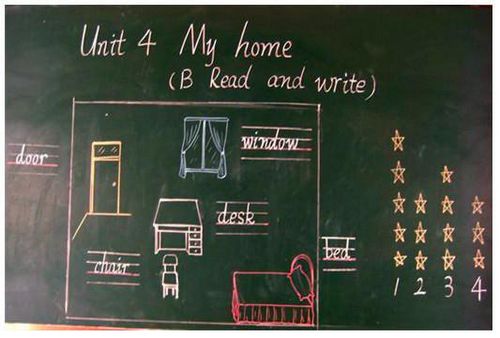 Unit 4 My home
(B Read and write)
door
window
desk
chair
bed
1 2 3 4